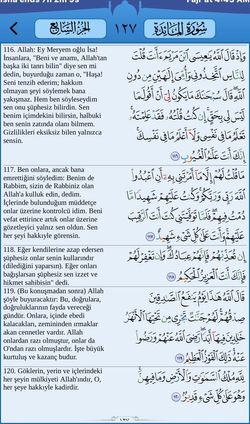 سُورَةُ المَائِدَة
١٢٧
الجُزْءُ السَّابِعُ
116. Allah: Ey Meryem oğlu İsa!
İnsanlara, "Beni ve anamı, Allah'tan
başka iki tanrı bilin" diye sen mi
dedin, buyurduğu zaman o, "Haşa!
Seni tenzih ederim; hakkım
olmayan şeyi söylemek bana
yakışmaz. Hem ben söyleseydim
sen onu şüphesiz bilirdin. Sen
benim içimdekini bilirsin, halbuki
ben senin zatında olanı bilmem.
Gizlilikleri eksiksiz bilen yalnızca
sensin.
وَإِذْ قَالَ ٱللَّهُ يَٰعِيسَى ٱبْنَ مَرْيَمَ ءَأَنتَ قُلْتَ
لِلنَّاسِ ٱتَّخِذُونِى وَأُمِّىَ إِلَٰهَيْنِ مِن دُونِ
ٱللَّهِ قَالَ سُبْحَٰنَكَ مَا يَكُونُ لِىٓ أَنْ أَقُولَ مَا
لَيْسَ لِى بِحَقٍّ إِن كُنتُ قُلْتُهُۥ فَقَدْ عَلِمْتَهُۥ تَعْلَمُ
مَا فِى نَفْسِى وَلَآ أَعْلَمُ مَا فِى نَفْسِكَ
إِنَّكَ أَنتَ عَلَّٰمُ ٱلْغُيُوبِ ١١٦
117. Ben onlara, ancak bana
emrettiğini söyledim: Benim de
Rabbim, sizin de Rabbiniz olan
Allah'a kulluk edin, dedim.
İçlerinde bulunduğum müddetçe
onlar üzerine kontrolcü idim. Beni
vefat ettirince artık onlar üzerine
gözetleyici yalnız sen oldun. Sen
her şeyi hakkıyle görensin.
مَا قُلْتُ لَهُمْ إِلَّا مَآ أَمَرْتَنِى بِهِۦٓ أَنِ ٱعْبُدُوا۟
ٱللَّهَ رَبِّى وَرَبَّكُمْ وَكُنتُ عَلَيْهِمْ شَهِيدًا مَّا
دُمْتُ فِيهِمْ فَلَمَّا تَوَفَّيْتَنِى كُنتَ أَنتَ ٱلرَّقِيبَ
عَلَيْهِمْ وَأَنتَ عَلَىٰ كُلِّ شَىْءٍ شَهِيدٌ ١١٧
118. Eğer kendilerine azap edersen
şüphesiz onlar senin kullarındır
(dilediğini yaparsın). Eğer onları
bağışlarsan şüphesiz sen izzet ve
hikmet sahibisin" dedi.
إِن تُعَذِّبْهُمْ فَإِنَّهُمْ عِبَادُكَ وَإِن تَغْفِرْ لَهُمْ
فَإِنَّكَ أَنتَ ٱلْعَزِيزُ ٱلْحَكِيمُ ١١٨
119. (Bu konuşmadan sonra) Allah
şöyle buyuracaktır: Bu, doğrulara,
doğruluklarının fayda vereceği
gündür. Onlara, içinde ebedî
kalacakları, zemininden ırmaklar
akan cennetler vardır. Allah
onlardan razı olmuştur, onlar da
O'ndan razı olmuşlardır. İşte büyük
kurtuluş ve kazanç budur.
قَالَ ٱللَّهُ هَٰذَا يَوْمُ يَنفَعُ ٱلصَّٰدِقِينَ
صِدْقُهُمْ لَهُمْ جَنَّٰتٌ تَجْرِى مِن تَحْتِهَا ٱلْأَنْهَٰرُ
خَٰلِدِينَ فِيهَآ أَبَدًا رَّضِىَ ٱللَّهُ عَنْهُمْ وَرَضُوا۟
عَنْهُ ذَٰلِكَ ٱلْفَوْزُ ٱلْعَظِيمُ ١١٩
120. Göklerin, yerin ve içlerindeki
her şeyin mülkiyeti Allah'ındır, O,
her şeye hakkıyle kadirdir.
لِلَّهِ مُلْكُ ٱلسَّمَٰوَٰتِ وَٱلْأَرْضِ وَمَا فِيهِنَّ
وَهُوَ عَلَىٰ كُلِّ شَىْءٍ قَدِيرٌۢ ١٢٠